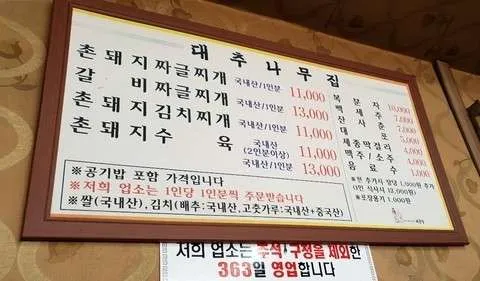 대추나무집
촌돼지짜글찌개 국내산/1인분 11,000
갈비짜글찌개 국내산/1인분 13,000
촌돼지김치찌개 국내산/1인분 11,000
촌돼지수육 국내산 (2인분이상) 11,000
국내산/1인분 13,000
복분자 10,000
백세주 7,000
산사춘 7,000
대포 5,000
세종막걸리 4,000
맥주/소주 4,000
음료수 1,000
※공기밥 포함 가격입니다
※저희 업소는 1인당 1인분씩 주문받습니다
※쌀(국내산).김치(배추:국내산.고춧가루:국내산+중국산)
※포장용기 1,000원
저희 업소는 추석·구정을 제외한
363일 영업합니다